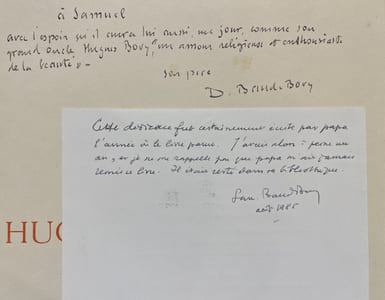 à Samuel
avec l'espoir qu'il aura lui aussi, un jour, comme son
grand oncle Hugues Bovy, "un amour religieux et enthousiaste
de la beauté" -
son père
D. Baud-Bovy
Cette dédicace fut certainement écrite par papa
l'année où le livre parut. J'avais alors à peine un
an, et je ne me rappelle pas que papa m'ait jamais
remis ce livre. Il était resté dans sa bibliothèque.
Sam Baud-Bovy
août 1985
HUG